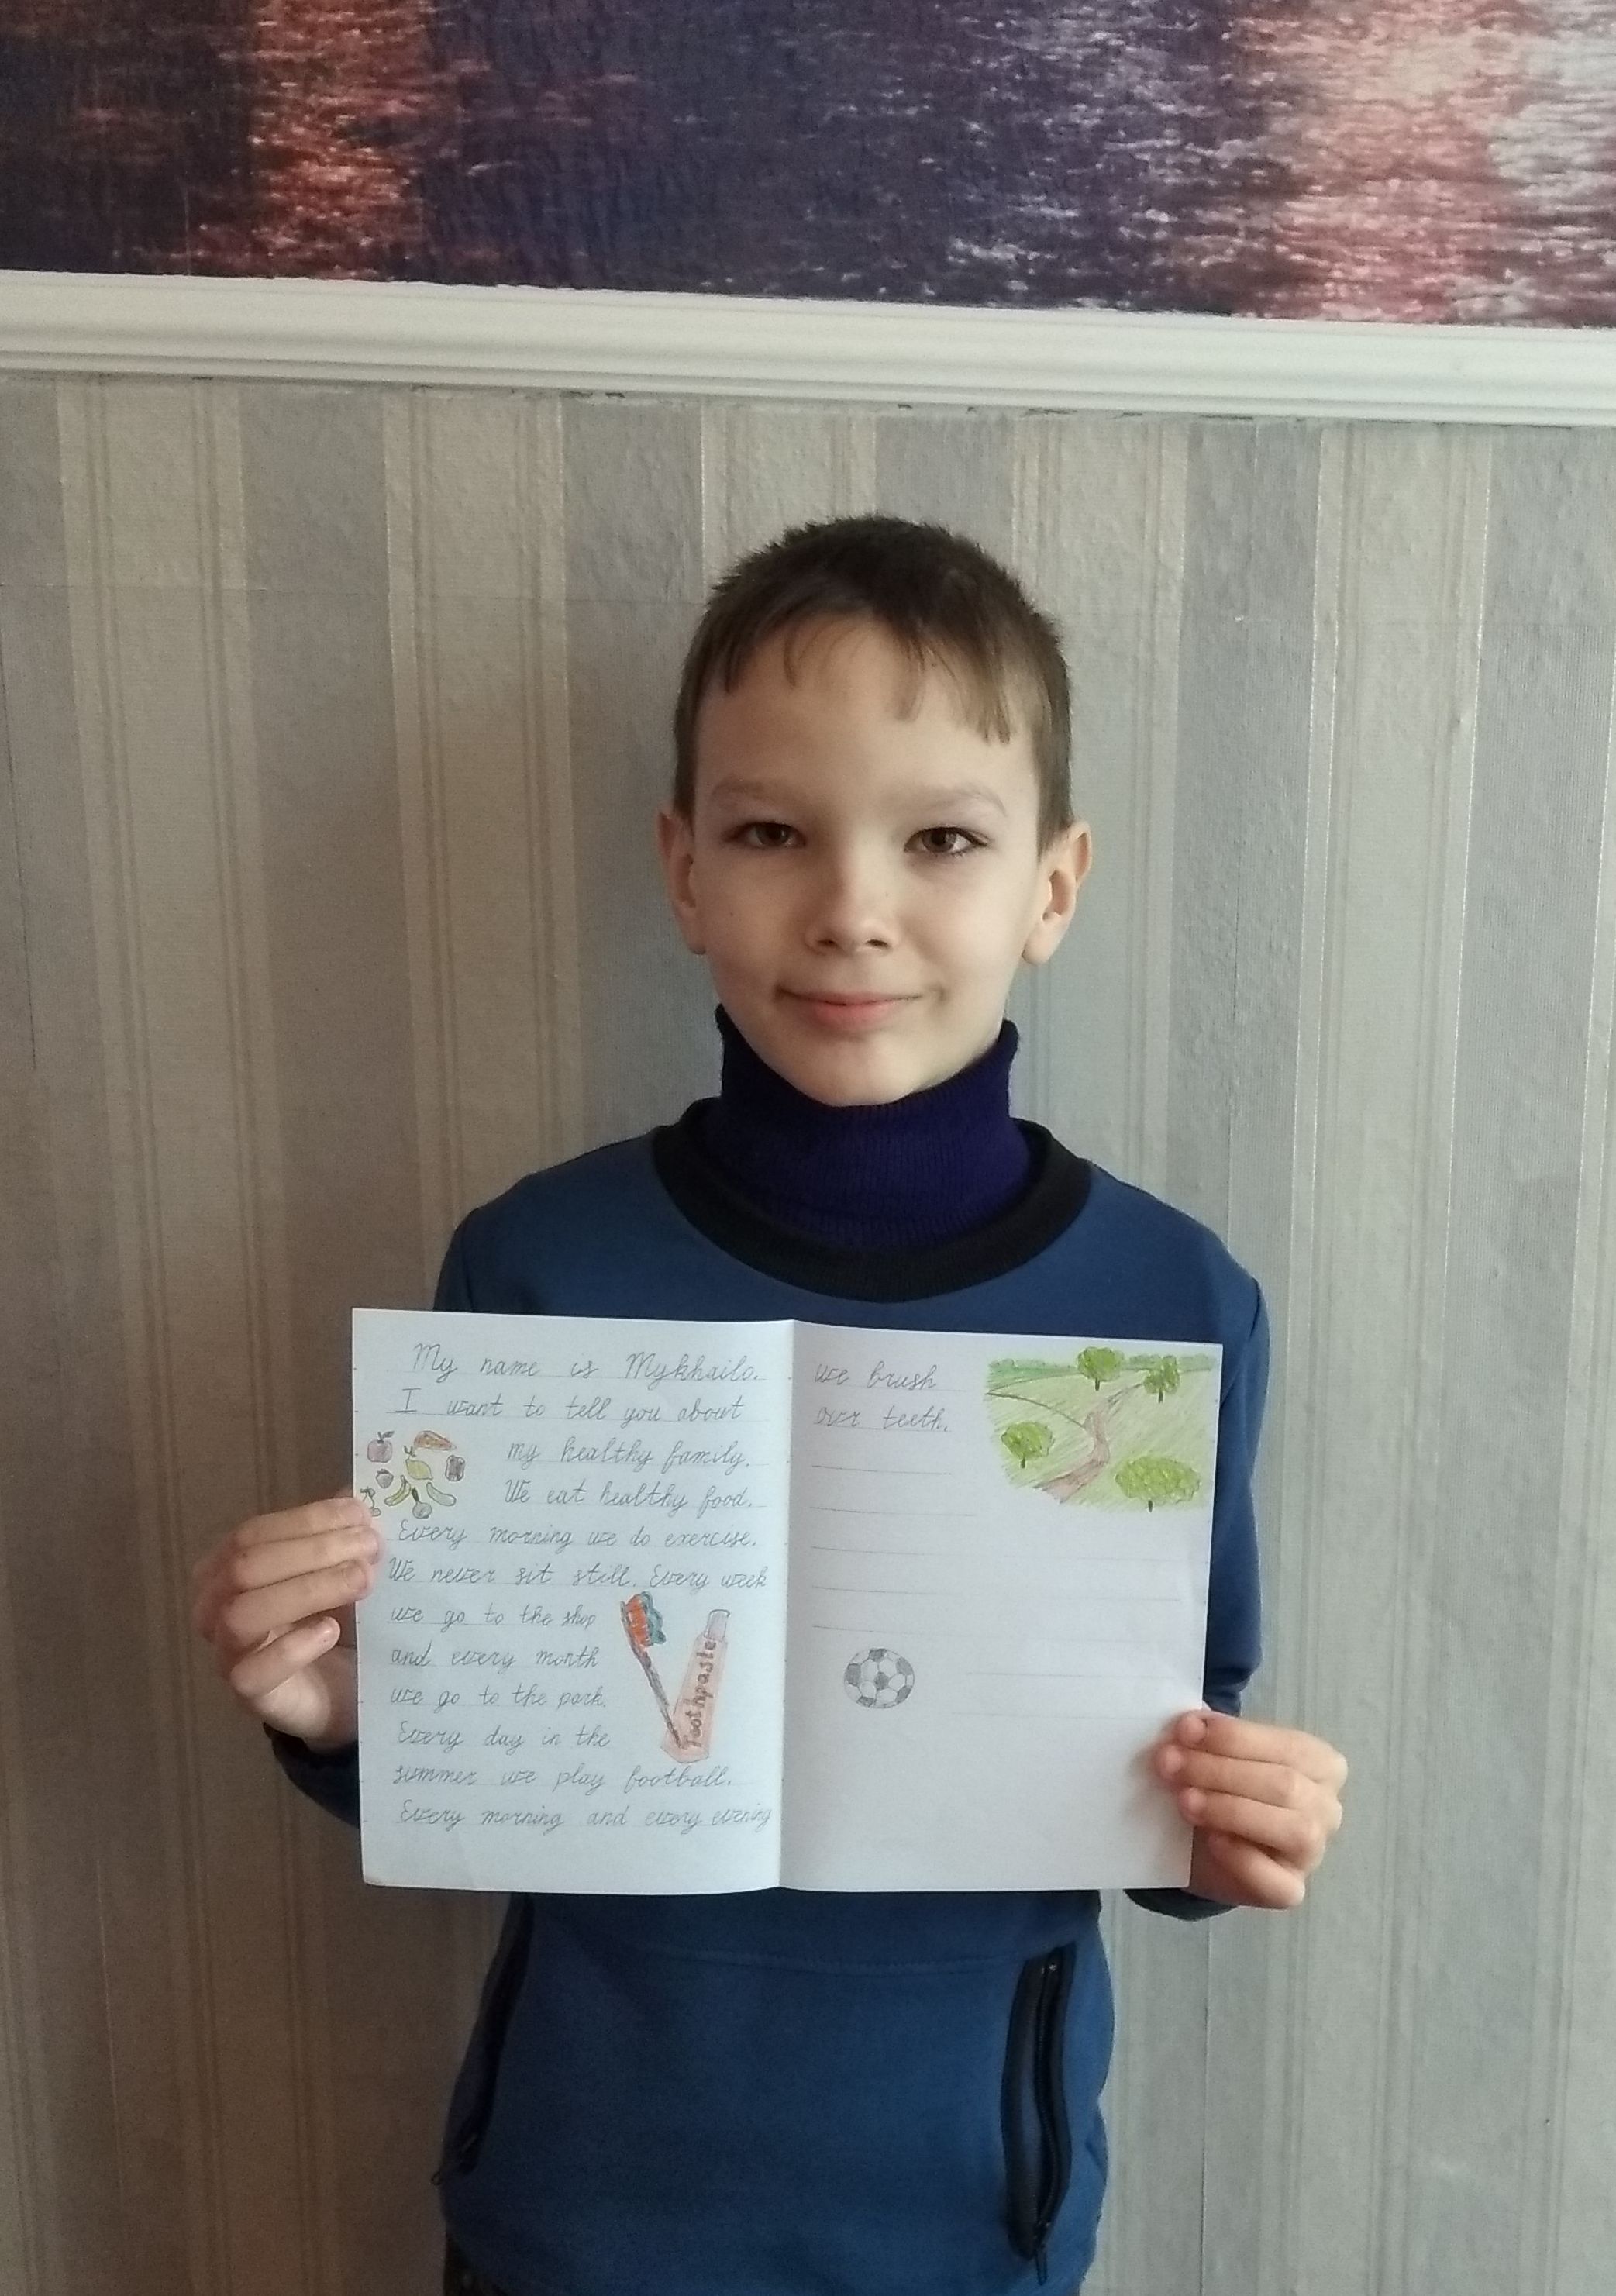 My name is Mykhailo.
I want to tell you about
my healthy family.
We eat healthy food.
Every morning we do exercise.
We never sit still. Every week
we go to the shop
and every month
we go to the park.
Every day in the
summer we play football.
Every morning and every evening
Toothpaste
we brush
our teeth.